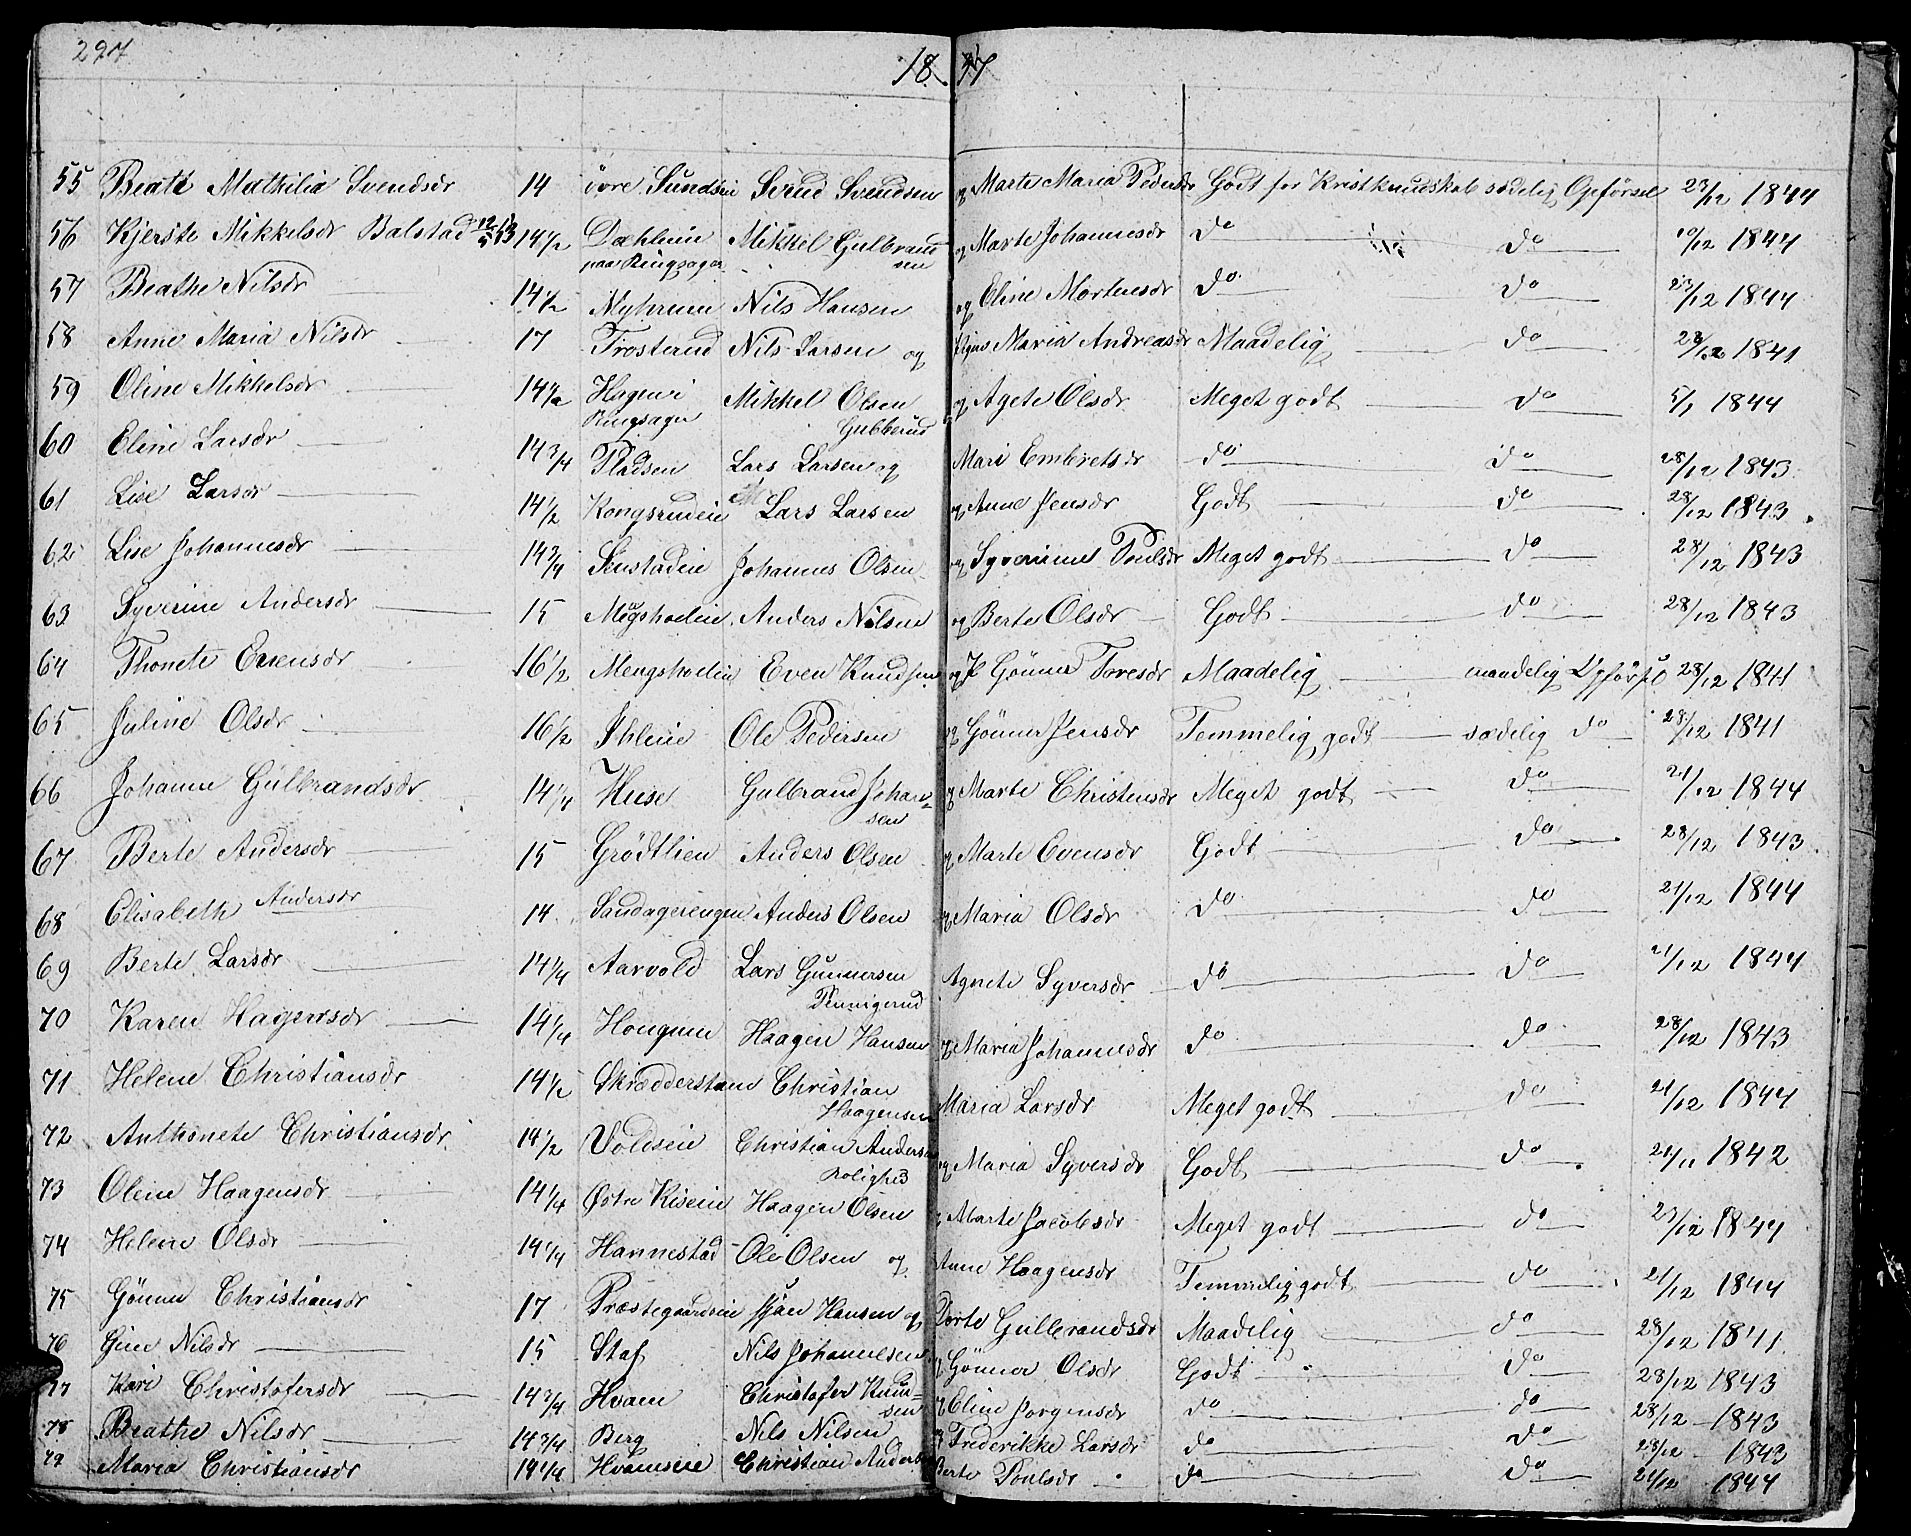 297
18
55 Beate Mathilia Svendsdr 14 övre Sundseie Svend Svendsen og Marte Maria Pedersdr Godt for Kristkundskab sædelig Opförsel 23/12 1844
56 Kjerste Mikkelsdr Balstad 14 1/2 Dæhleneie Mikkel Gulbrand og Marte Johannesdr do do 10/12 1844
paa Ringsager sen
57 Beathe Nilsdr 14 1/2 Myhreneie Nils Hansen og Eline Mortensdr do do 23/12 1844
58 Anne Maria Nilsdr 17 Frosterud Nils Larsen og Maria Andreasdr Maadelig do 28/12 1841
59 Oline Mikkelsdr 14 1/2 Hageneie Mikkel Olsen og Agete Olsdr Meget godt do 5/1 1844
Ringsager Gubberud
60 Eline Larsdr 14 3/4 Pladsen Lars Larsen og Mari Embretsdr do do 28/12 1843
61 Lise Larsdr 14 1/2 Kongsrudeie Lars Larsen og Anne Jensdr Godt do 28/12 1843
62 Lise Johannesdr 14 3/4 Senstadeie Johannes Olsen og Syverine Poulsdr Meget godt do 28/12 1843
63 Syverine Andersdr 15 Megshoeleie Anders Nilsen og Berte Olsdr Godt do 28/12 1843
64 Thonete Evensdr 16 1/2 Mengshoeleie Even Knudsen og Gönner Toresdr Maadelig maadelig Opförsel 28/12 1841
65 Juline Olsdr 16 1/2 Ihleeie Ole Pedersen og Gönner Jensdr Temmelig godt sædelig do 28/12 1841
66 Johanne Gulbrandsdr 14 1/4 Huse Gulbrand Johan- og Marte Christensdr Meget godt do 21/12 1844
sen
67 Berte Andersdr 15 Grödtlien Anders Olsen og Marte Evensdr Godt do 28/12 1843
68 Elisabeth Andersdr 14 Sandagerengen Anders Olsen og Maria Olsdr do do 21/12 1844
69 Berte Larsdr 14 1/4 Aarvold Lars Gunnersen Agnete Syversdr do do 21/12 1844
Pennigerud
70 Karen Hagensdr 14 1/4 Hougeneie Haagen Hansen og Maria Johannesdr do do 28/12 1843
71 Helene Christiansdr 14 1/2 Skrædderstuen Christian Maria Larsdr Meget godt do 21/12 1844
Haagensen
72 Anthonete Christiansdr 14 1/2 Voldseie Christian Andersen og Maria Syversdr Godt do 24/11 1842
Rolighed
73 Oline Haagensdr 14 1/4 Østre Riseeie Haagen Olsen og Marte Jacobsdr Meget godt do 23/12 1844
74 Helene Olsdr 14 1/4 Hannestad Ole Olsen og Anne Haagensdr Temmelig godt do 21/12 1844
75 Gönner Christiansdr 17 Præstegaardseie Hansen og Dorte Gulbrandsdr Maadelig do 28/12 1841
76 Gine Nilsdr 15 Staf Nils Johannesen og Gönner Olsdr Godt do 28/12 1843
77 Kari Christofersdr 14 3/4 Hvam Christofer Knud- og Eline Jorgensdr do do 28/12 1843
sen
78 Beathe Nilsdr 14 3/4 Berg Nils Nilsen og Frederikke Larsdr do do 28/12 1843
79 Maria Christiansdr 14 1/4 Hvamseie Christian Anders Berte Poulsdr do do 21/12 1844